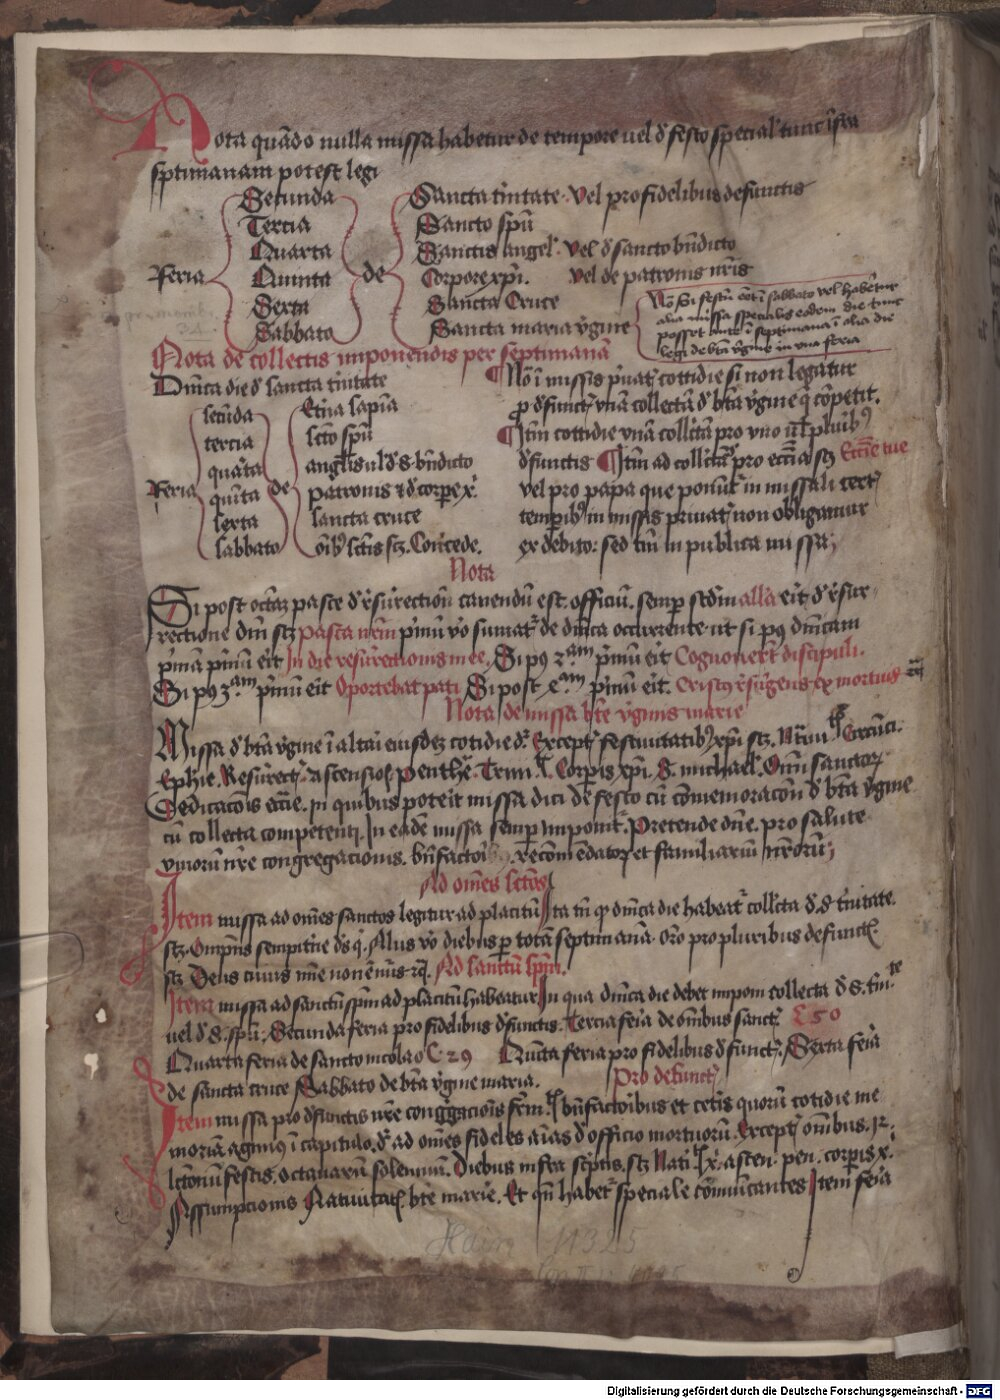 Nota quādo nulla missa habetur de tempore uel d' festo special' tunc ī fra
sptimanam potest legi
Feria
Secunda
Tercia
Quarta
Quinta
Sexta
Sabbato
de
Sancta tinitate. vel pro fidelibus defunctis
Sancto spū
Sanctis angel'. vel d' sancto bndicto
Corpore xpi. vel de patronis nris
Sancta Cruce
Sancta maria v'gine
No Si festū in sabbato vel habētur
alia missa specialis eadem die tunc
posset ante ī septimana ī alia die
legi de bta v'gine in una feria
Nota de collectis imponendis per septimanā
Dnica die d' sancta tinitate
Feria
secūda
tercia
quarta
quīta
sexta
sabbato
de
Etna sapīa
scto spū
anglis ul' d' s. bndicto
patronis & d' corpe x'
sancta cruce
oib' sctis scz. Concede.
No ī missis p'uat' cottidie si non legatur
p d'funct' vnā collectā d' bta v'gine q' cōpetit.
Itm cottidie vnā collctā pro vno ul' pluib'
d'functis Itm ad collctā pro eccīa scz Eccīe tue
vel pro papa que ponūt' in missali cert'
temp'ib' in missis priuat' non obligamur
ex debito: sed tm in publica missa;
Nota
Si post octaz pasce d' r'surrectiōn canendū est. officiū. semp scdm all'a erit d' r'sur-
rectione dm scz pasca nrm p'mū vo sumat' de dnica occurrente ut si p9 dnicam
p'mā p'mū erit In die resurrectionis mee. Si p9 2am p'mū erit Cognouert discipuli.
Si p9 3am p'mū erit Oportebat pati Si post 4am p'mū erit. Cristus r'surgens ex mortuis
Nota de missa bte v'ginis marie
Missa d' bta v'gine ī altai eiusdez cotidie d'. Except' festiuitatib' xpi scz. Circūci.
Ephie. Resurrect'. ascensiō penthe. Trini. Corpis xpi. S. michael'. Oim sanctorz
Dedicacōis eccīe. in quibus poterit missa dici de festo cū cōmemoracōn d' bta v'gine
cū collecta competenti. In eadē missa semp imponit'. Pretende dne. pro salute
viuorū nre congregacionis. bnfactoi recomēdatorz et familiariū nrorū;
Ad omēs sctos
Item missa ad omēs sanctos legitur ad placitū Ita tn q dnica die habeat' collcta d. s. tinitate.
scz. Omps sempitne ds q'. Alijs vo diebus p totā septimanā. oro pro pluribus defunct'
scz Deus cuius mie non ē nūs Ad sanctū spm.
Item missa ad sanctū spm ad placitū habeatur In qua dnica die debet imponi collecta d' s. tini-te
uel d' s. spū. Secunda feria pro fidelibus d'functis. Tercia feīa de omibus sanct' C 50
Quarta feria de sancto nicolao C 29 Quīta feria pro fidelibus d'funct'. Sexta feīa
de sancta cruce Sabbato de bta v'gine maria. Pro defunct'
Item missa pro d'functis nre cong'gacionis bnfactoibus et cetis quorū cotidie me
moriam agimus ī capitulo. d' ad omēs fideles aīas d' officio mortuorū. Except' omibus.
lctionū festis. octauarū solenniū. Diebus infra sc'ptis. scz Nati. ascen. pen. corpis x.
Assumpcionis Natiuitat' bte marie. Et qn habet' speciale cōmūicantes Item feīa
Hain 11325